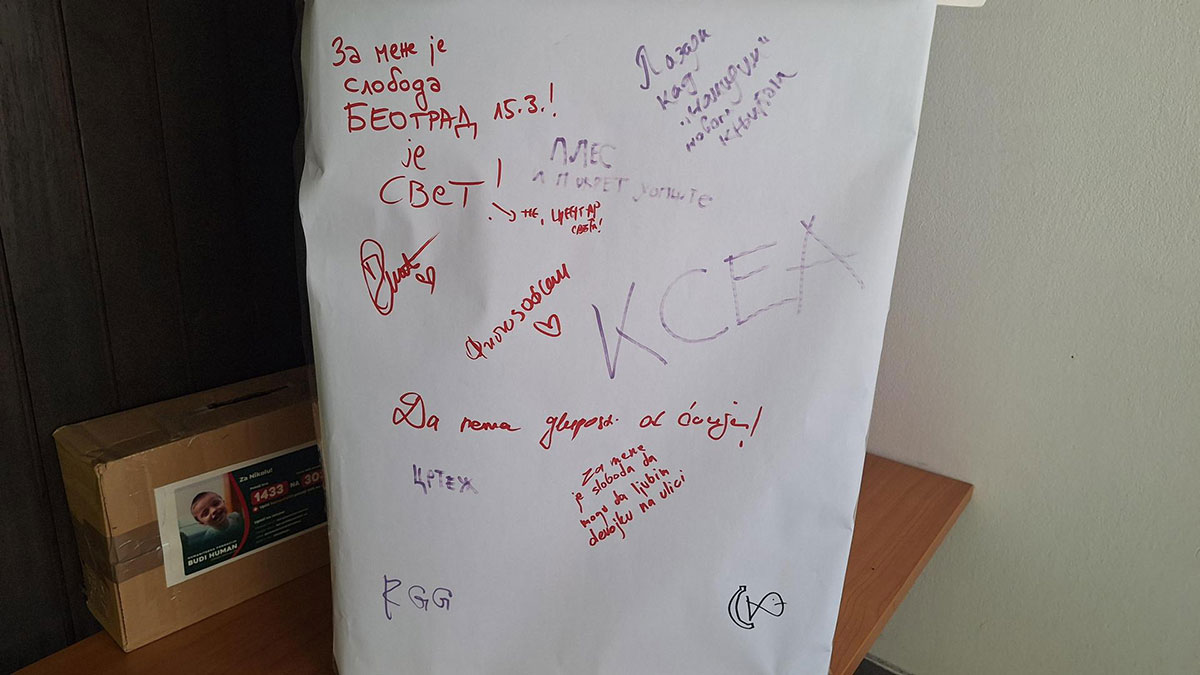 За мене је
слобода
БЕОГРАД 15.3.!
је
СВЕТ!
не, центар
света!
Лазари
кад
новом
књигом
ПЛЕС
И ПОКРЕТ уопште
КСЕА
Da nema
ЦРТЕЖ
Za mene
je sloboda da
mogu da ljubim
devojku na ulici
RGG
Za Nikolu!
1433 NA 303
BUDI HUMAN